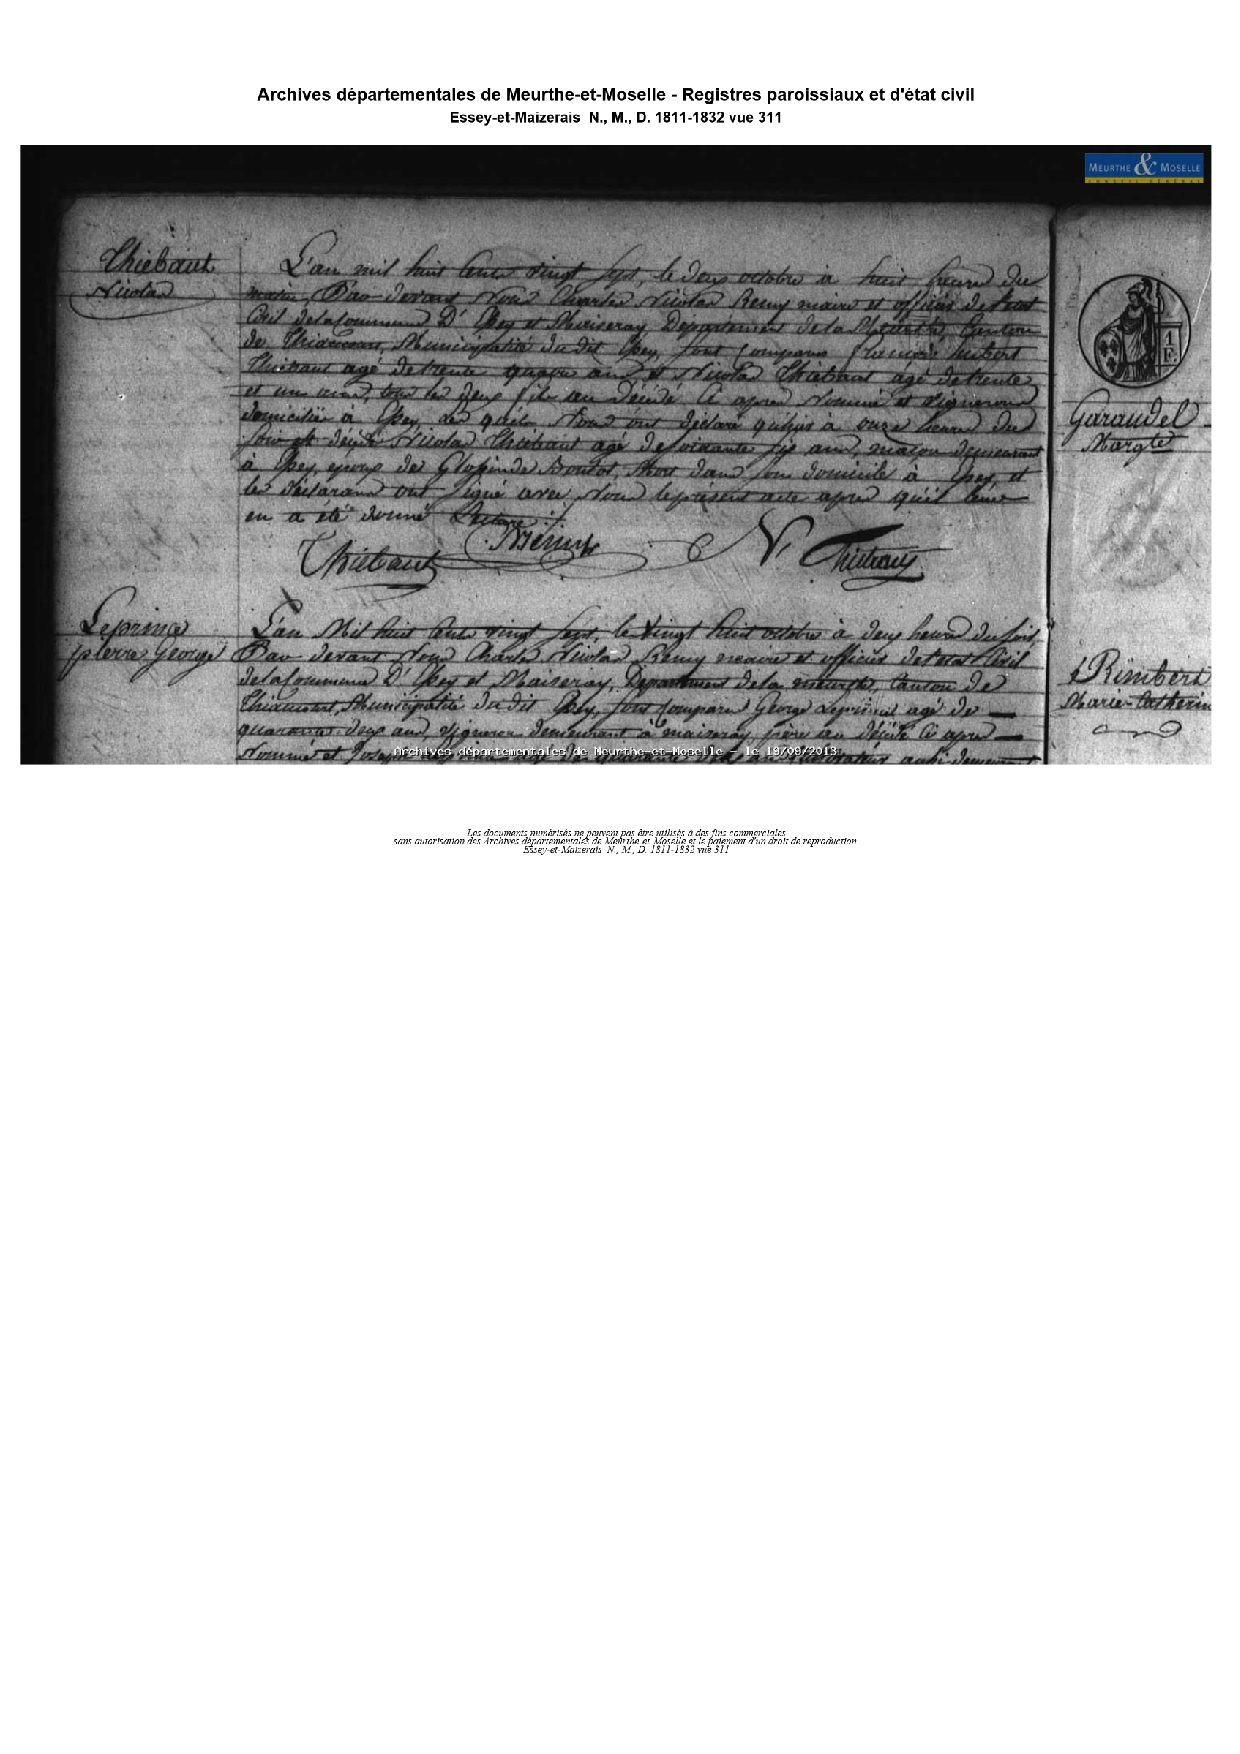 Archives départementales de Meurthe-et-Moselle - Registres paroissiaux et d'état civil
Essey-et-Maizerais N., M., D. 1811-1832 vue 311
MEURTHE & MOSELLE
CONSEIL GÉNÉRAL
Thiebaut
Nicolas
L'an mil huit cent vingt sept, le deux octobre à huit heure du
matin, Par devant Nous Charles Nicolas Remy maire et officier de l'etat
Civil delaCommune D' Essey et Maiseray, Département de la Meurthe, Canton
de Thiaucourt, Municipalité du dit Essey, sont comparus François hubert
Thiebaut agé de trente quatre ans et Nicolas Thiebaut agé de trente
et un ans, tous les deux fils au Décédé Ci apres Nommé et vignerons
domiciliés à Essey, les quels Nous ont déclaré qu'hier à onze heure du
soir est décédé Nicolas Thiebaut agé de soixante six ans, maçon demeurant
à Essey, epoux de Glosinde Boulot, Mort dans son domicile à Essey, et
les déclarans ont signé avec Nous le présent acte apres qu'il leur
en a été donné Lecture
Thiebaut
Remy
N. Thiebaut
Leprince
pierre George
L'an Mil huit Cent vingt sept, le vingt huit octobre à deux heures du soir,
Par devant Nous Charles Nicolas Remy maire et officier de l'etat Civil
delaCommune D' Essey et Maiseray, Département de la meurthe, Canton de
Thiaucourt, Municipalité du dit Essey, sont comparu George Leprince agé de
quarante deux ans, vigneron demeurant à maiseray, père au décédé Ci apres
Nommé et Joseph
1
F.
Garaudel
Margte
Rimbert
Marie-Catherine
Archives départementales de Meurthe-et-Moselle - le 19/09/2013
Les documents numérisés ne peuvent pas être utilisés à des fins commerciales
sans autorisation des Archives départementales de Meurthe et Moselle et le paiement d'un droit de reproduction
Essey-et-Maizerais N., M., D. 1811-1832 vue 311